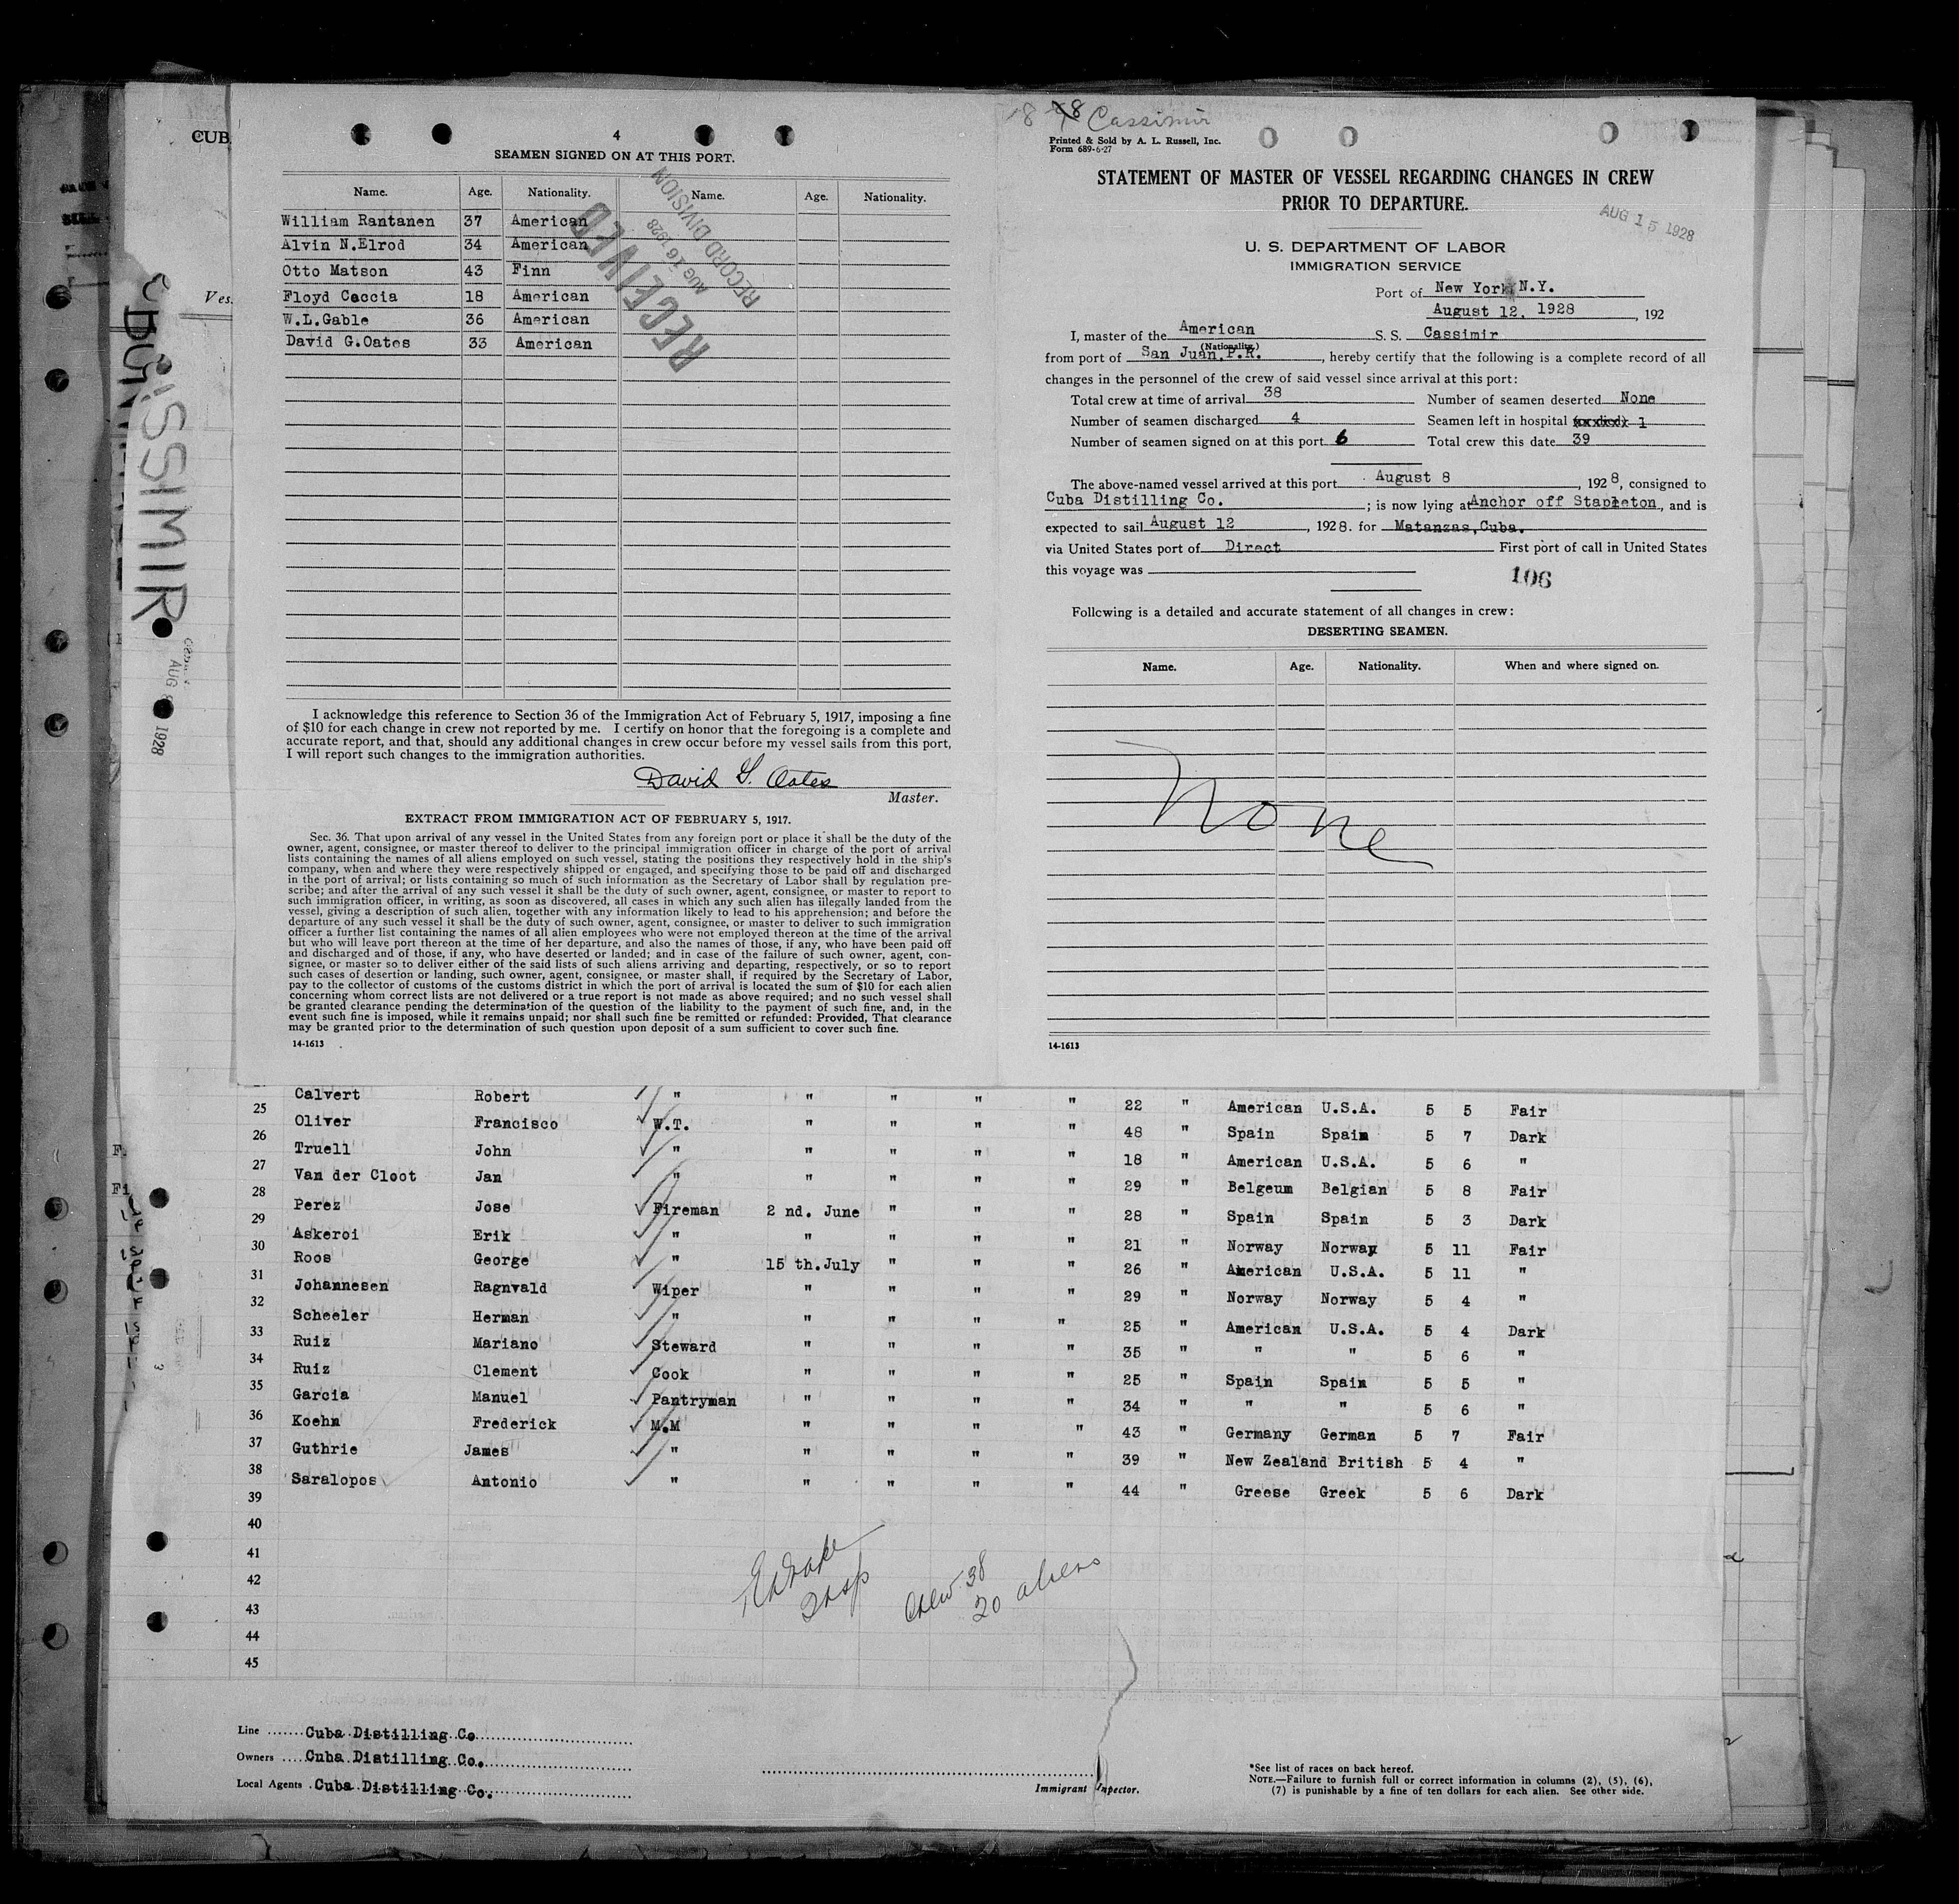 CUB
Ves.
CASSIMIR
AUG 8 1928
4
SEAMEN SIGNED ON AT THIS PORT.
Name. Age. Nationality. Name. Age. Nationality.
William Rantanen 37 American
Alvin N.Elrod 34 American
Otto Matson 43 Finn
Floyd Caccia 18 American
W.L.Gable 36 American
David G.Oates 33 American
RECEIVED
AUG 16 1928
RECORD DIVISION
I acknowledge this reference to Section 36 of the Immigration Act of February 5, 1917, imposing a fine
of $10 for each change in crew not reported by me. I certify on honor that the foregoing is a complete and
accurate report, and that, should any additional changes in crew occur before my vessel sails from this port,
I will report such changes to the immigration authorities.
David G. Oates
Master.
EXTRACT FROM IMMIGRATION ACT OF FEBRUARY 5, 1917.
Sec. 36. That upon arrival of any vessel in the United States from any foreign port or place it shall be the duty of the
owner, agent, consignee, or master thereof to deliver to the principal immigration officer in charge of the port of arrival
lists containing the names of all aliens employed on such vessel, stating the positions they respectively hold in the ship's
company, when and where they were respectively shipped or engaged, and specifying those to be paid off and discharged
in the port of arrival; or lists containing so much of such information as the Secretary of Labor shall by regulation pre-
scribe; and after the arrival of any such vessel it shall be the duty of such owner, agent, consignee, or master to report to
such immigration officer, in writing, as soon as discovered, all cases in which any such alien has illegally landed from the
vessel, giving a description of such alien, together with any information likely to lead to his apprehension; and before the
departure of any such vessel it shall be the duty of such owner, agent, consignee, or master to deliver to such immigration
officer a further list containing the names of all alien employees who were not employed thereon at the time of the arrival
but who will leave port thereon at the time of her departure, and also the names of those, if any, who have been paid off
and discharged and of those, if any, who have deserted or landed; and in case of the failure of such owner, agent, con-
signee, or master so to deliver either of the said lists of such aliens arriving and departing, respectively, or so to report
such cases of desertion or landing, such owner, agent, consignee, or master shall, if required by the Secretary of Labor,
pay to the collector of customs of the customs district in which the port of arrival is located the sum of $10 for each alien
concerning whom correct lists are not delivered or a true report is not made as above required; and no such vessel shall
be granted clearance pending the determination of the question of the liability to the payment of such fine, and, in the
event such fine is imposed, while it remains unpaid; nor shall such fine be remitted or refunded: Provided, That clearance
may be granted prior to the determination of such question upon deposit of a sum sufficient to cover such fine.
14-1613
Cassimir
Printed & Sold by A. L. Russell, Inc.
Form 689-6-27
STATEMENT OF MASTER OF VESSEL REGARDING CHANGES IN CREW
PRIOR TO DEPARTURE.
AUG 15 1928
U. S. DEPARTMENT OF LABOR
IMMIGRATION SERVICE
Port of New York N.Y.
August 12, 1928, 192
I, master of the American S. S. Cassimir
(Nationality.)
from port of San Juan, P.R., hereby certify that the following is a complete record of all
changes in the personnel of the crew of said vessel since arrival at this port:
Total crew at time of arrival 38 Number of seamen deserted None
Number of seamen discharged 4 Seamen left in hospital (or died) 1
Number of seamen signed on at this port 6 Total crew this date 39
The above-named vessel arrived at this port August 8, 1928, consigned to
Cuba Distilling Co.; is now lying at Anchor off Stapleton, and is
expected to sail August 12, 1928. for Matanzas,Cuba.
via United States port of Direct First port of call in United States
this voyage was
106
Following is a detailed and accurate statement of all changes in crew:
DESERTING SEAMEN.
Name. Age. Nationality. When and where signed on.
None
14-1613
Calvert Robert " " " " " 22 " American U.S.A. 5 5 Fair
25 Oliver Francisco W.T. " " " " 48 " Spain Spain 5 7 Dark
26 Truell John " " " " " 18 " American U.S.A. 5 6 "
27 Van der Cloot Jan " " " " " 29 " Belgeum Belgian 5 8 Fair
28 Perez Jose Fireman 2 nd. June " " " 28 " Spain Spain 5 3 Dark
29 Askeroi Erik " " " " " 21 " Norway Norway 5 11 Fair
30 Roos George " 15 th.July " " " 26 " American U.S.A. 5 11 "
31 Johannesen Ragnvald Wiper " " " " 29 " Norway Norway 5 4 "
32 Scheeler Herman " " " " " 25 " American U.S.A. 5 4 Dark
33 Ruiz Mariano Steward " " " " 35 " " " 5 6 "
34 Ruiz Clement Cook " " " " 25 " Spain Spain 5 5 "
35 Garcia Manuel Pantryman " " " " 34 " " " 5 6 "
36 Koehn Frederick M.M " " " " 43 " Germany German 5 7 Fair
37 Guthrie James " " " " " 39 " New Zealand British 5 4 "
38 Saralopos Antonio " " " " " 44 " Greese Greek 5 6 Dark
39
40
41
42
43
44
45
Crew 38
20 aliens
Line Cuba Distilling Co
Owners Cuba Distilling Co.
Local Agents Cuba Distilling Co.
Immigrant Inpector.
*See list of races on back hereof.
NOTE.—Failure to furnish full or correct information in columns (2), (5), (6),
(7) is punishable by a fine of ten dollars for each alien. See other side.